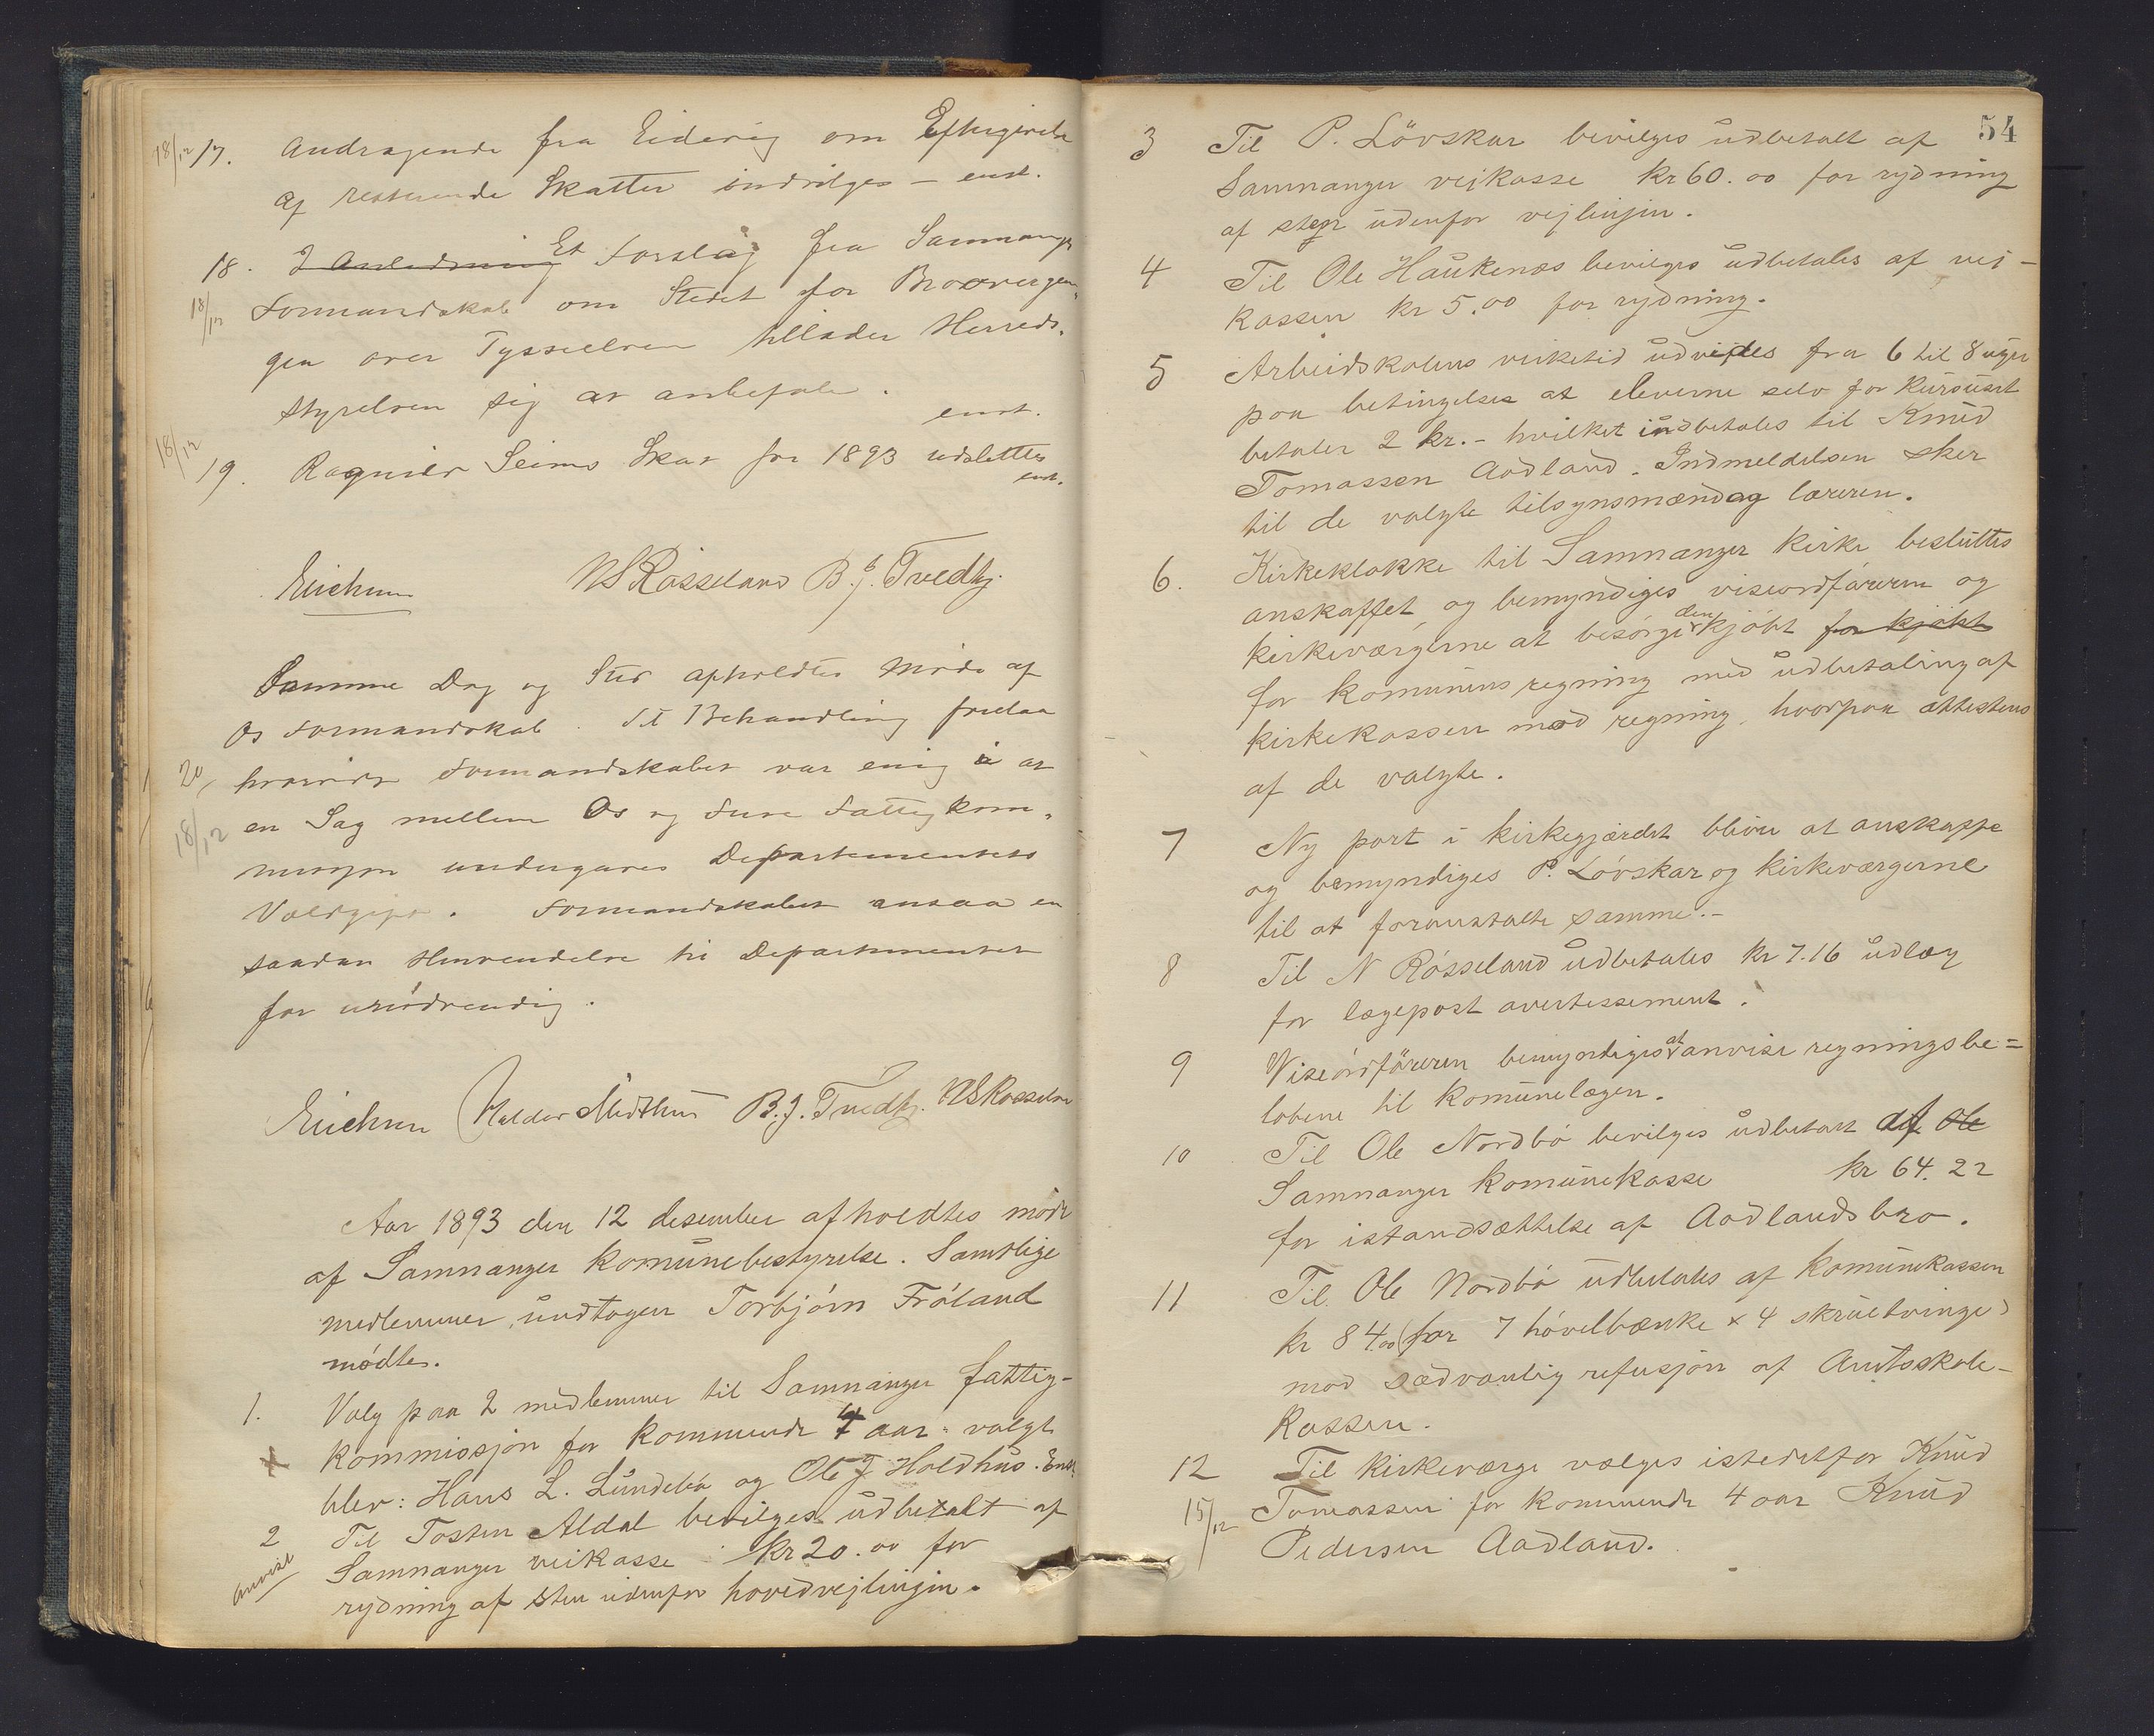 18/12 17. Andragende fra Eidevig om Eftergivelse
af resterende Skatter indvilges – enst.
18. I Anledning Et Forslag fra Samnanger
18/12 Formandskab om Stedet for Broovergan-
gen over Tysseelven tillader Herreds-
styrelsen sig at anbefale.
enst.
18/12
19. Ragnild Seims Skat for 1893 udslettes
enst.
Erichsen NSRösseland B. J. Tvedtg.
Samme Dag og Sted afholdtes Møde af
Os Formandskab. Til Behandling forelaa
20, hvorvidt Formandskabet var enig i at
18/12 en Sag mellem Os og Fuse Fattigkom-
mission undergaves Departementets
Voldgift. Formandskabet ansaa en
saadan Henvendelse til Departementet
for unødvendig.
Erichsen Haldor Midthun B. J. Tvedtg. NSRosseland
Aar 1893 den 12 desember afholdtes møde
af Samnanger komunebestyrelse. Samtlige
medlemmer, undtagen Torbjørn Frøland
mødte.
1. Valg paa 2 medlemmer til Samnanger fattig-
kommissjon for kommende 4 aar: valgt
blev: Hans L. Lundebø og Ole J Holdhus. Enst.
2 Til Tosten Aldal bevilges udbetalt af
anvist Samnanger veikasse kr 20.00 for
rydning af sten udenfor hovedvejlinjen.
54
3 Til P. Lövskar bevilges udbetalt af
Samnanger vejkasse kr 60.00 for rydning
af sten udenfor vejlinjen.
4 Til Ole Haukenæs bevilges udbetales af vej-
kassen kr 5.00 for rydning.
5 Arbeidskolens virketid udvides fra 6 til 8 uger
paa betingelse at eleverne selv for kursuset
betaler 2 kr. – hvilket indbetales til Knud
Tomassen Aadland. Indmeldelsen sker
til de valgte tilsynsmænd og læreren.
6. Kirkeklokke til Samnanger kirke besluttes
anskaffet og bemyndiges viseordføreren og
kirkeværgerne at besørge den kjøbt for kjøbt
for komunens regning med udbetaling af
kirkekassen mod regning, hvorpaa attestens
af de valgte.
7 Ny port i kirkegjærdet bliver at anskaffe
og bemyndiges P. Lövskar og kirkeværgerne
til at foranstalte samme. –
8 Til N Røsseland udbetales kr 7.16 udlæg
for lægepost avertissement.
9 Viseordføreren bemyndiges at anvise regningsbe=
løbene til komunelægen.
10 Til Ole Nordbø bevilges udbetalt af Ole
Samnanger komunekasse kr 64.22
for istandsættelse af Aadlandsbro.
11 Til Ole Nordbø udbetales af komunekassen
kr 84.00 (for 7 høvelbænke x 4 skruetvinge)
mod sædvanlig refusjon af Amtsskole-
kassen.
12 Til kirkeværge vælges istedetfor Knud
15/12 Tomassen for kommende 4 aar Knud
Pedersen Aadland.